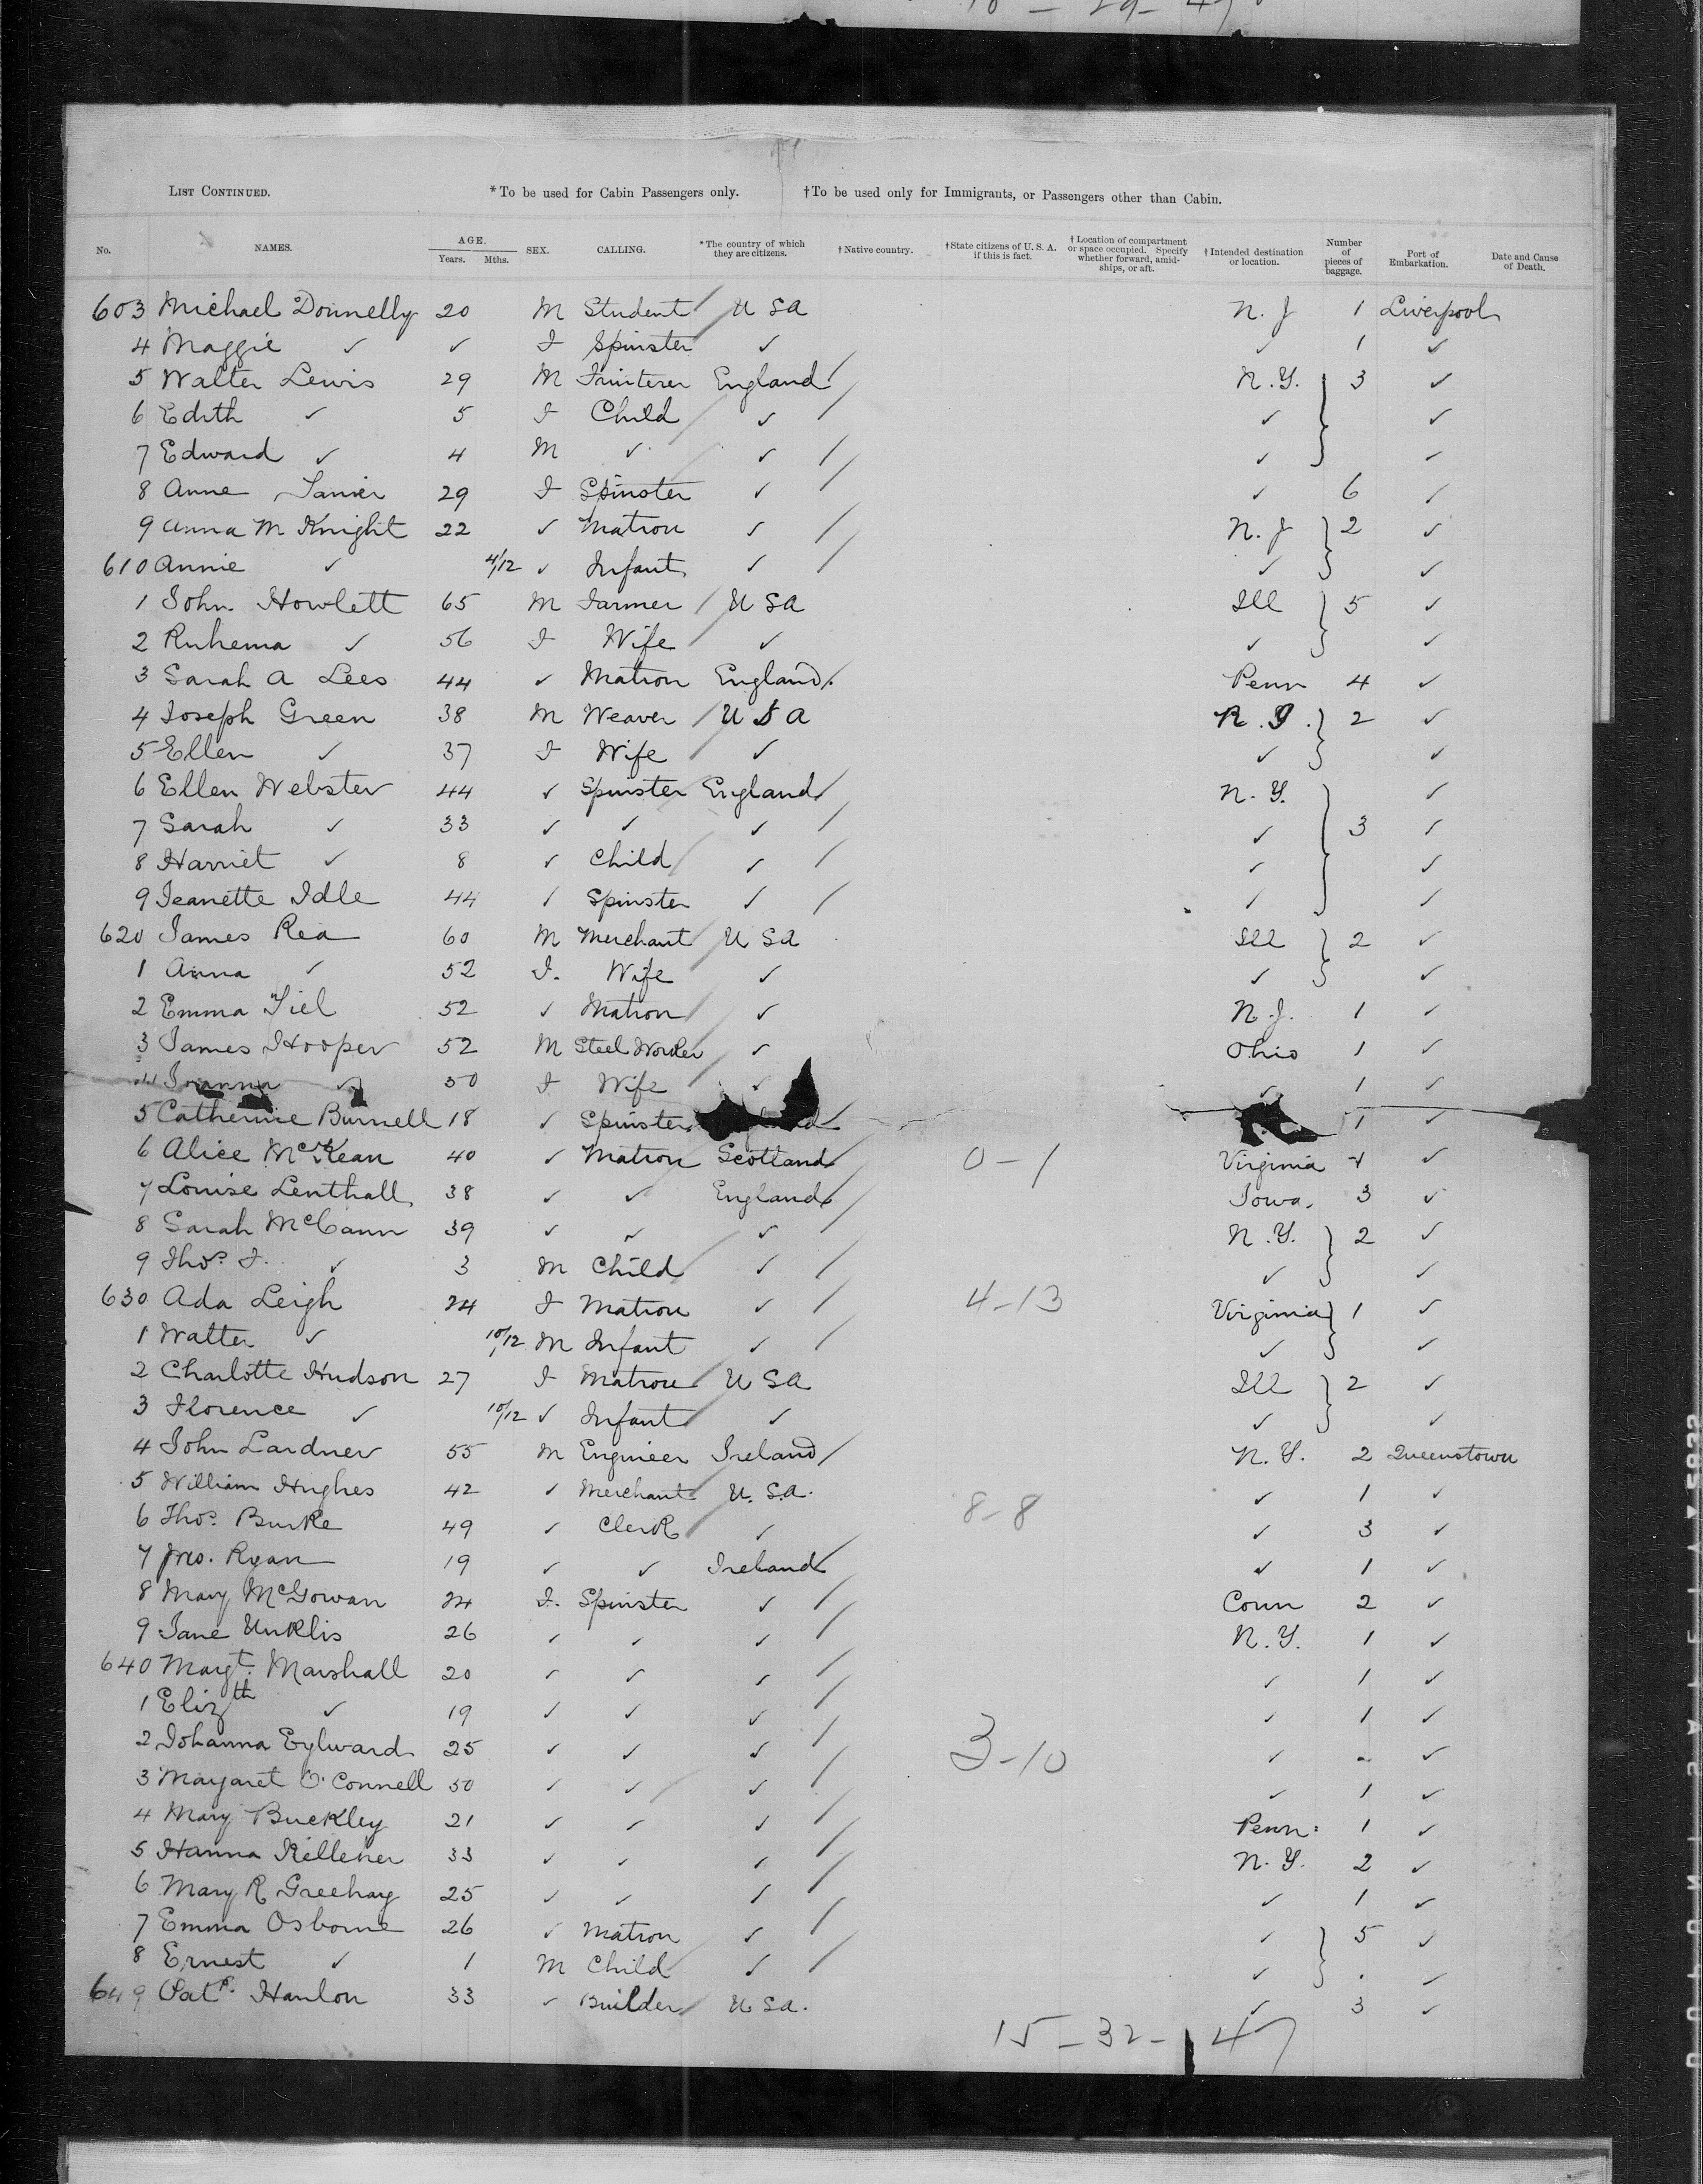 LIST CONTINUED. *To be used for Cabin Passengers only. †To be used only for Immigrants, or Passengers other than Cabin.
No. NAMES. AGE. Years. Mths. SEX. CALLING. *The country of which they are citizens. †Native country. †State citizens of U. S. A. if this is fact. †Location of compartment or space occupied. Specify whether forward, amidships, or aft. †Intended destination or location. Number of pieces of baggage. Port of Embarkation. Date and Cause of Death.
603 Michael Donnelly 20 M Student U S A N. J 1 Liverpool
4 Maggie ✓ ✓ F Spinster ✓ ✓ 1 ✓
5 Walter Lewis 29 M Fruiterer England N.Y. 3 ✓
6 Edith ✓ 5 F Child ✓ ✓ ✓
7 Edward ✓ 4 M ✓ ✓ ✓ ✓
8 Anne 29 F Spinster ✓ ✓ 6 ✓
9 Anna M Knight 22 ✓ Matron ✓ N. J 2 ✓
610 Annie ✓ 4/12 ✓ Infant ✓ ✓ ✓
1 John Howlett 65 M Farmer U S A Ill 5 ✓
2 Ruhema ✓ 56 F Wife ✓ ✓ ✓
3 Sarah A Lees 44 ✓ Matron England Penn 4 ✓
4 Joseph Green 38 M Weaver U S A 2 ✓
5 Ellen ✓ 37 F Wife ✓ ✓ ✓
6 Ellen Webster 44 ✓ Spinster England N. Y. ✓
7 Sarah ✓ 33 ✓ ✓ ✓ ✓ 3 ✓
8 Harriet ✓ 8 ✓ Child ✓ ✓ ✓
9 Jeanette Idle 44 ✓ Spinster ✓ ✓ ✓
620 James Rea 60 M Merchant U S A Ill 2 ✓
1 Anna ✓ 52 F. Wife ✓ ✓ ✓
2 Emma Tiel 52 ✓ Matron ✓ N. J. 1 ✓
3 James Hooper 52 M Steel Worker ✓ Ohio 1 ✓
4 Joanna ✓ 50 F Wife ✓ ✓ 1 ✓
5 Catherine Burnell 18 ✓ Spinster 1 ✓
6 Alice McKean 40 ✓ Matron Scotland 0-1 Virginia ✓
7 Louise Lenthall 38 ✓ ✓ England Iowa. 3 ✓
8 Sarah McCann 39 ✓ ✓ ✓ N.Y. 2 ✓
9 Thos. F. ✓ 3 M Child ✓ ✓ ✓
630 Ada Leigh 24 F Matron ✓ 4-13 Virginia 1 ✓
1 Walter ✓ 10/12 M Infant ✓ ✓ ✓
2 Charlotte Hudson 27 F Matron U S A Ill 2 ✓
3 Florence ✓ 10/12 ✓ Infant ✓ ✓ ✓
4 John Lardner 55 M Engineer Ireland N. Y. 2 Queenstown
5 William Hughes 42 ✓ Merchant U. S.A. ✓ 1 ✓
6 Thos. Burke 49 ✓ Clerk ✓ 8-8 ✓ 3 ✓
7 Jno. Ryan 19 ✓ ✓ Ireland ✓ 1 ✓
8 Mary McGowan 24 F. Spinster ✓ Conn 2 ✓
9 Jane Unklis 26 ✓ ✓ ✓ N.Y. 1 ✓
640 Margt. Marshall 20 ✓ ✓ ✓ ✓ 1 ✓
1 Elizth ✓ 19 ✓ ✓ ✓ ✓ 1 ✓
2 Johanna Eylward 25 ✓ ✓ ✓ 3-10 ✓ - ✓
3 Margaret O'Connell 50 ✓ ✓ ✓ ✓ 1 ✓
4 Mary Buckley 21 ✓ ✓ ✓ Penn. 1 ✓
5 Hanna Kelleher 33 ✓ ✓ ✓ N. Y. 2 ✓
6 Mary R 25 ✓ ✓ ✓ ✓ 1 ✓
7 Emma Osborne 26 ✓ Matron ✓ ✓ 5 ✓
8 Ernest ✓ 1 M Child ✓ ✓ ✓
649 Patk. Hanlon 33 ✓ Builder U S A. ✓ 3 ✓
15-32-47